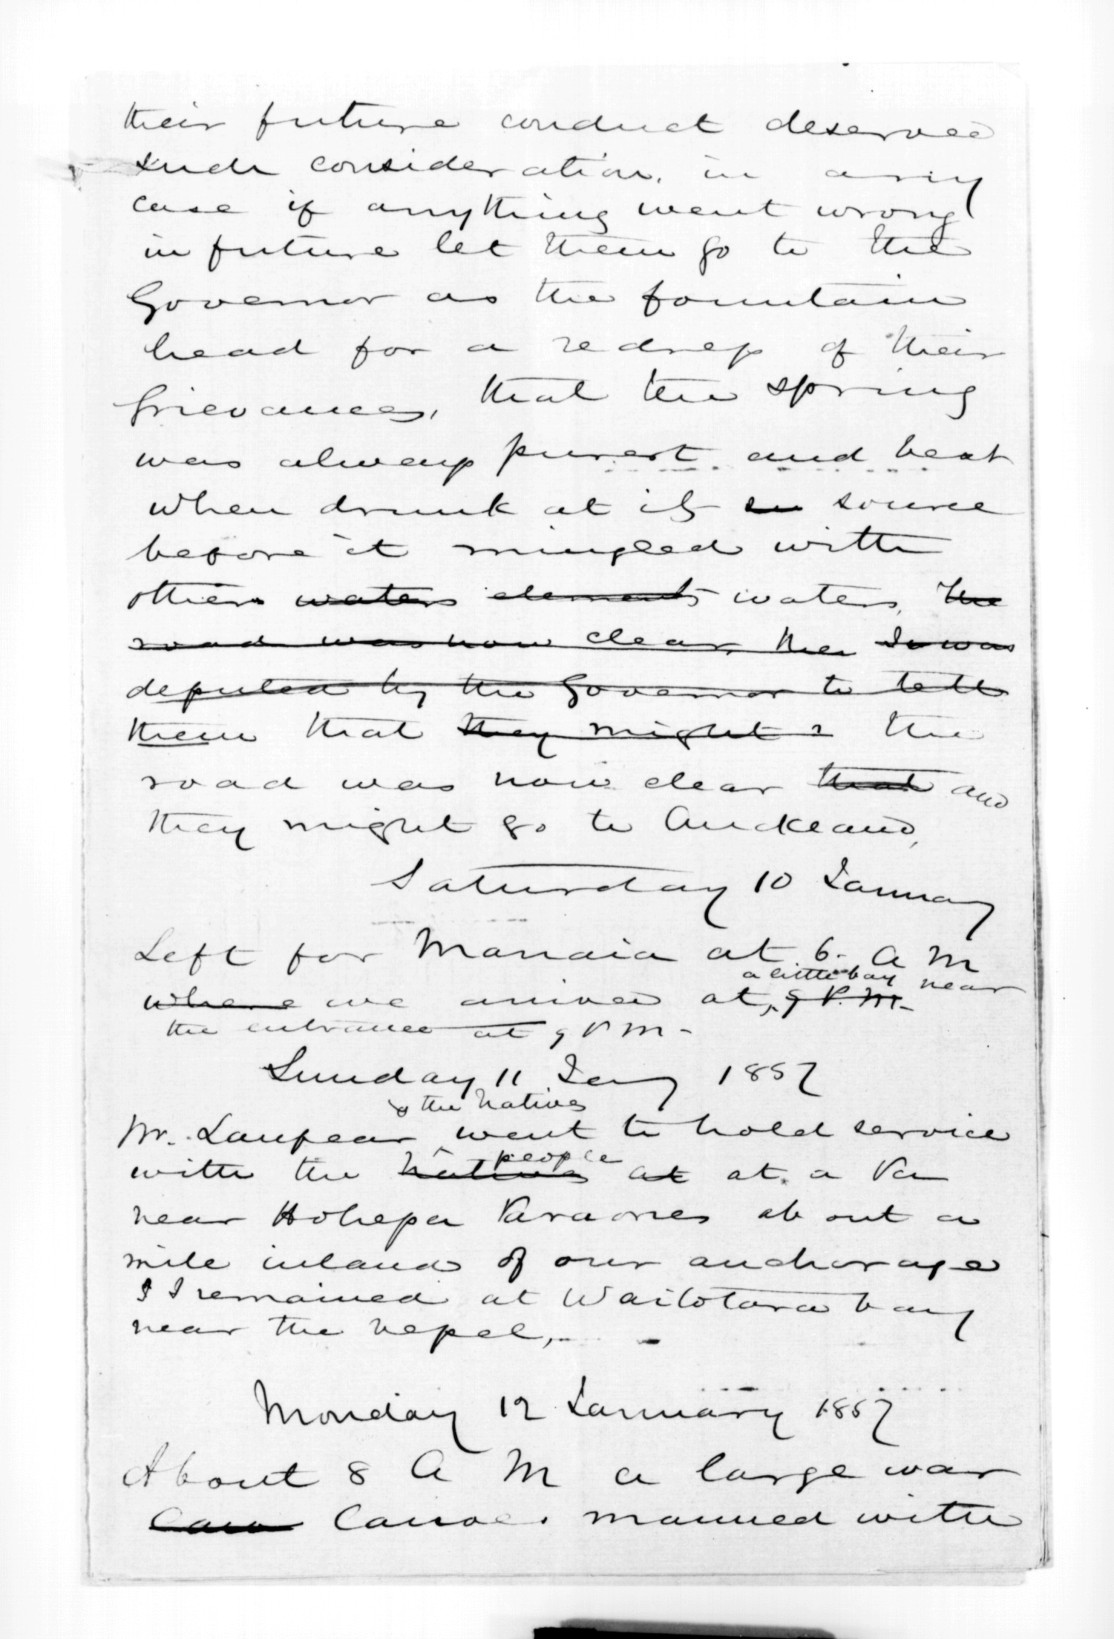 their future conduct deserved
such consideration, in any
case if anything went wrong
in future let them go to the
Governor as the fountain
head for a redress of their
Grievances, that the spring
was always purest and best
when drunk at its so source
before it mingled with
others waters elements waters, The
road was now clear, the I was
deputed by the Governor to tell
them that they might the
road was now clear that and
they might go to Auckland,
Saturday 10 January
Left for Manaia at 6. A M
a little bay near
where we arrived at, 9 P.M.
the entrance at 9 P M -
Sunday 11 Jany 1857
& the Natives
Mr. Lanfear went to hold service
people
with the Natives at at a Pa
near Hohepa Paraones about a
mile inland of our anchorage
I I remained at Waitotara bay
near the vessel,
Monday 12 January 1857
About 8 A M a large war
Canoe. manned with